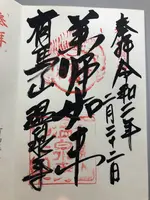 奉拝 令和二年
二月二十二日
薬師如来
有馬山 温泉寺